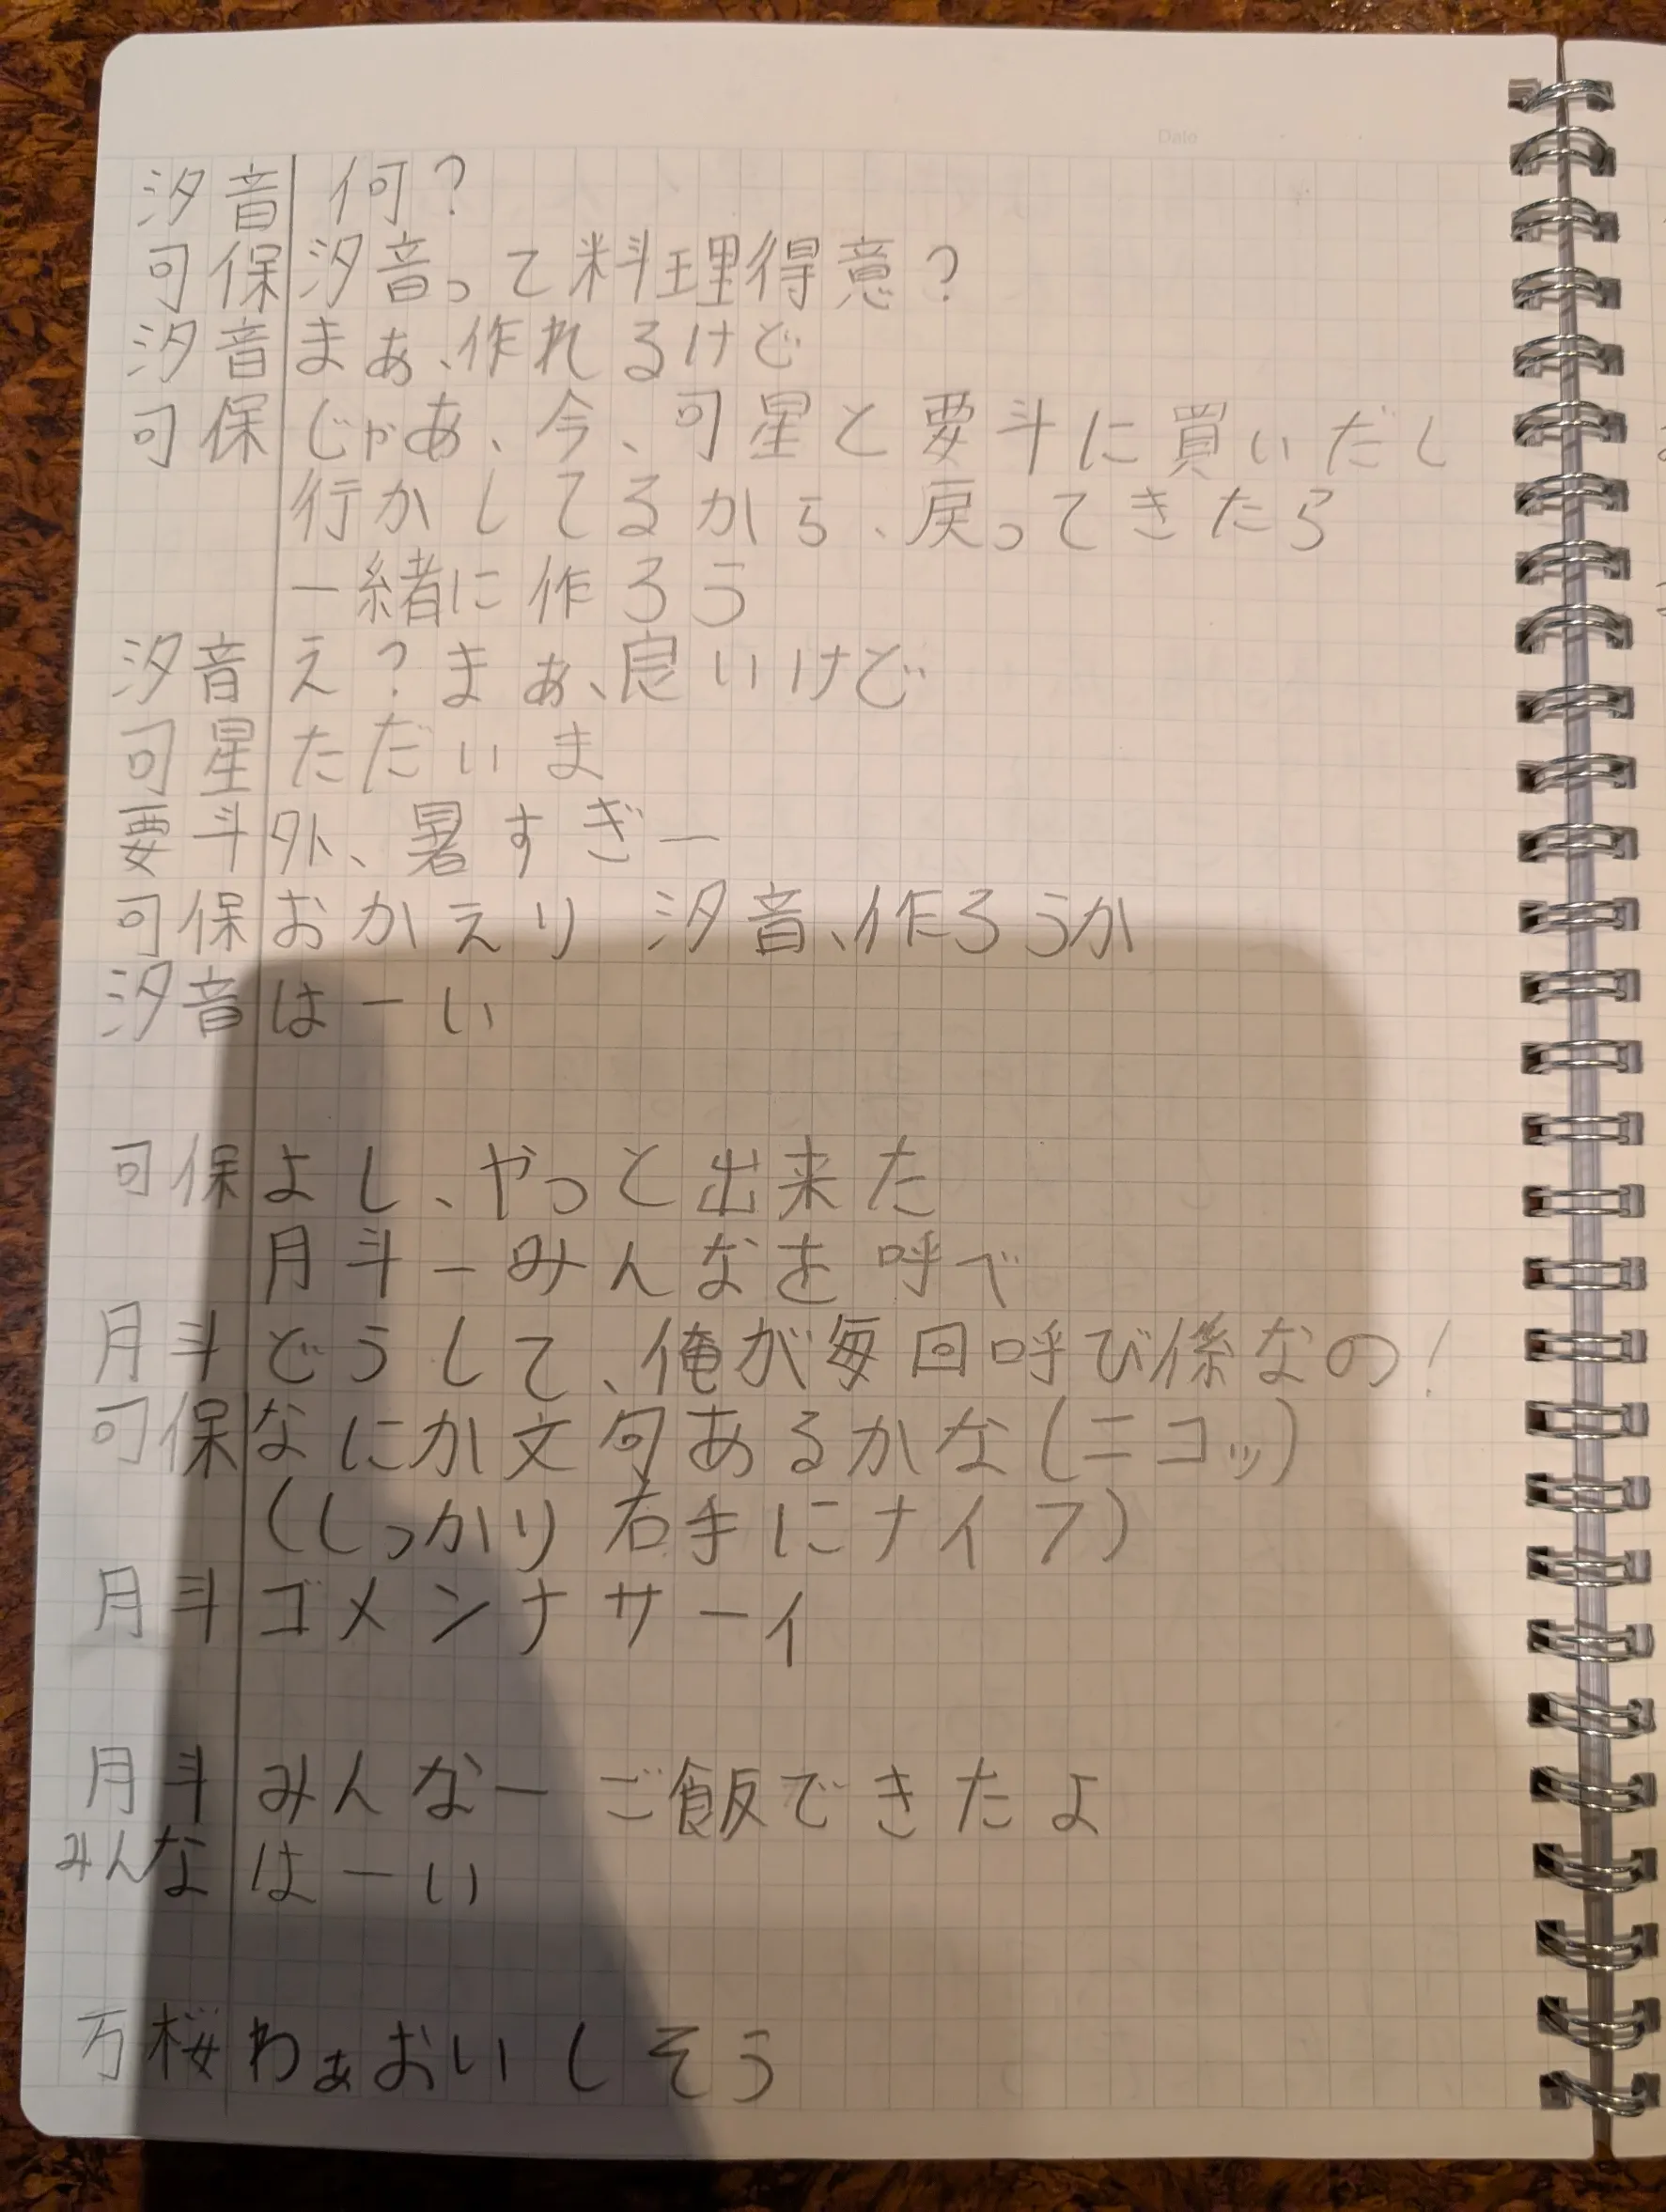 Date
汐音 何?
可保 汐音って料理得意?
汐音 まぁ、作れるけど
可保 じゃあ、今、可星と要斗に買いだし
行かしてるから、戻ってきたら
一緒に作ろう
汐音 え?まぁ、良いけど
可星 ただいま
要斗 外、暑すぎー
可保 おかえり 汐音、作ろうか
汐音 はーい
可保 よし、やっと出来た
月斗ーみんなを呼べ
月斗 どうして、俺が毎回呼び係なの!
可保 なにか文句あるかな(ニコッ)
(しっかり右手にナイフ)
月斗 ゴメンナサーイ
月斗 みんなー ご飯できたよ
みんな はーい
万桜 わぁおいしそう